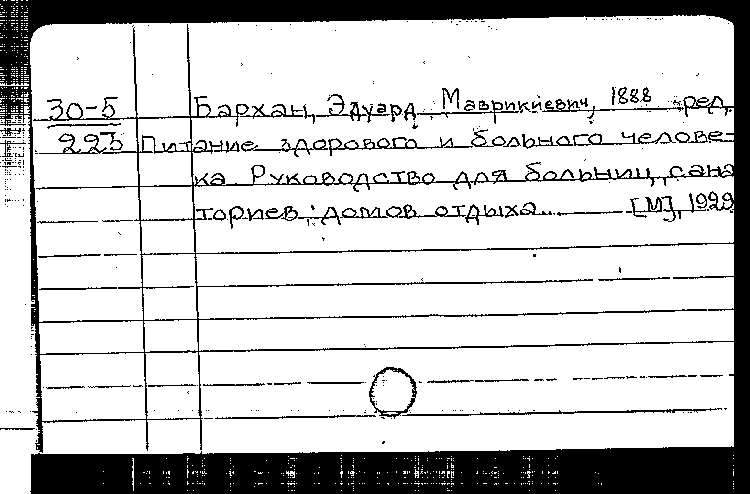 30-5 Бархан, Эдуард Маврикиевич, 1888 ред.
225 Питание здорового и больного челове-
ка. Руководство для больниц, сана
ториев, домов отдыха... [М], 1929